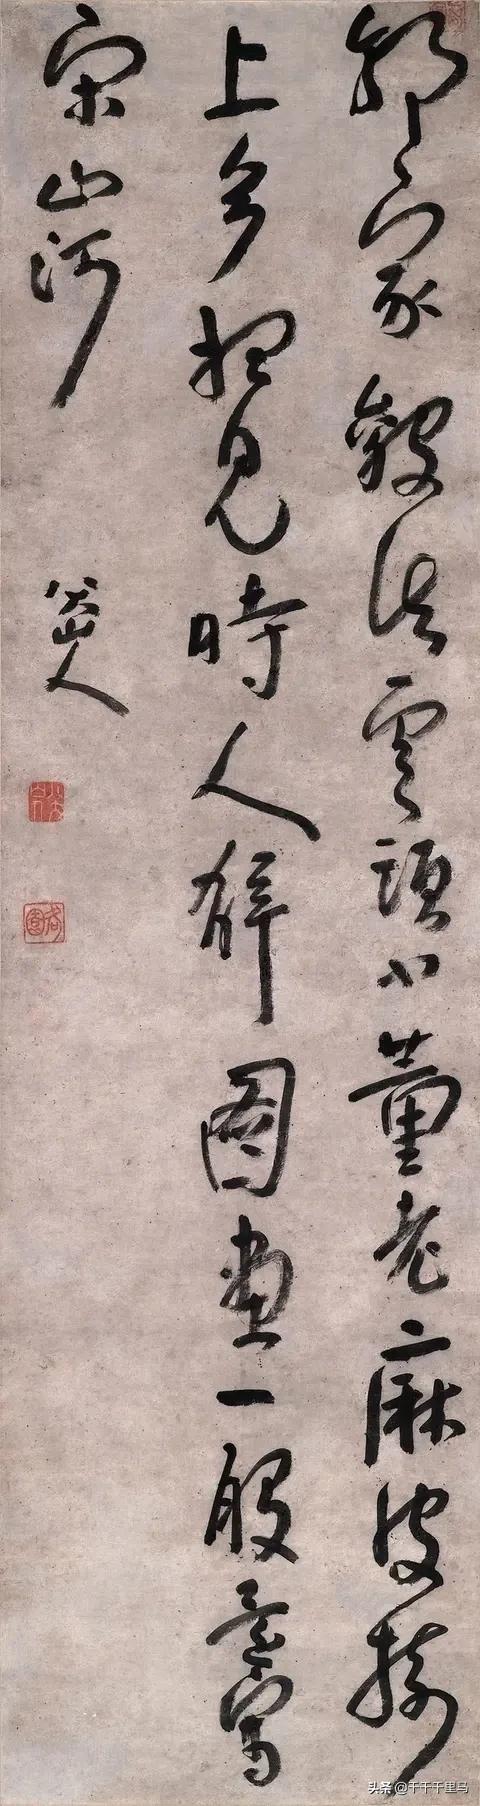 郭家皴法雲頭小董老麻皮樹
上多想見時人解圖畫一般意寫
宋山河
八大山人
头条 @千千千里鸟